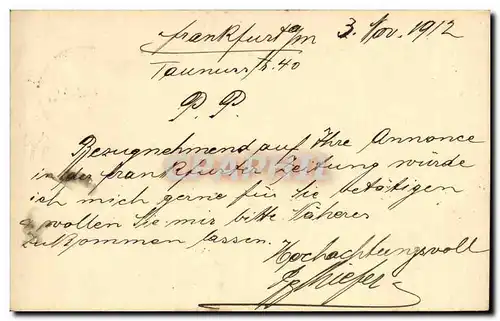 Frankfurt a/m 3. Nov. 1912
Taunusstr. 40
P. P.
Bezugnehmend auf Ihre Annonce
in der Frankfurter Zeitung würde
ich mich gerne für Sie betätigen
& wollen Sie mir bitte Näheres
zukommen lassen.
Hochachtungsvoll